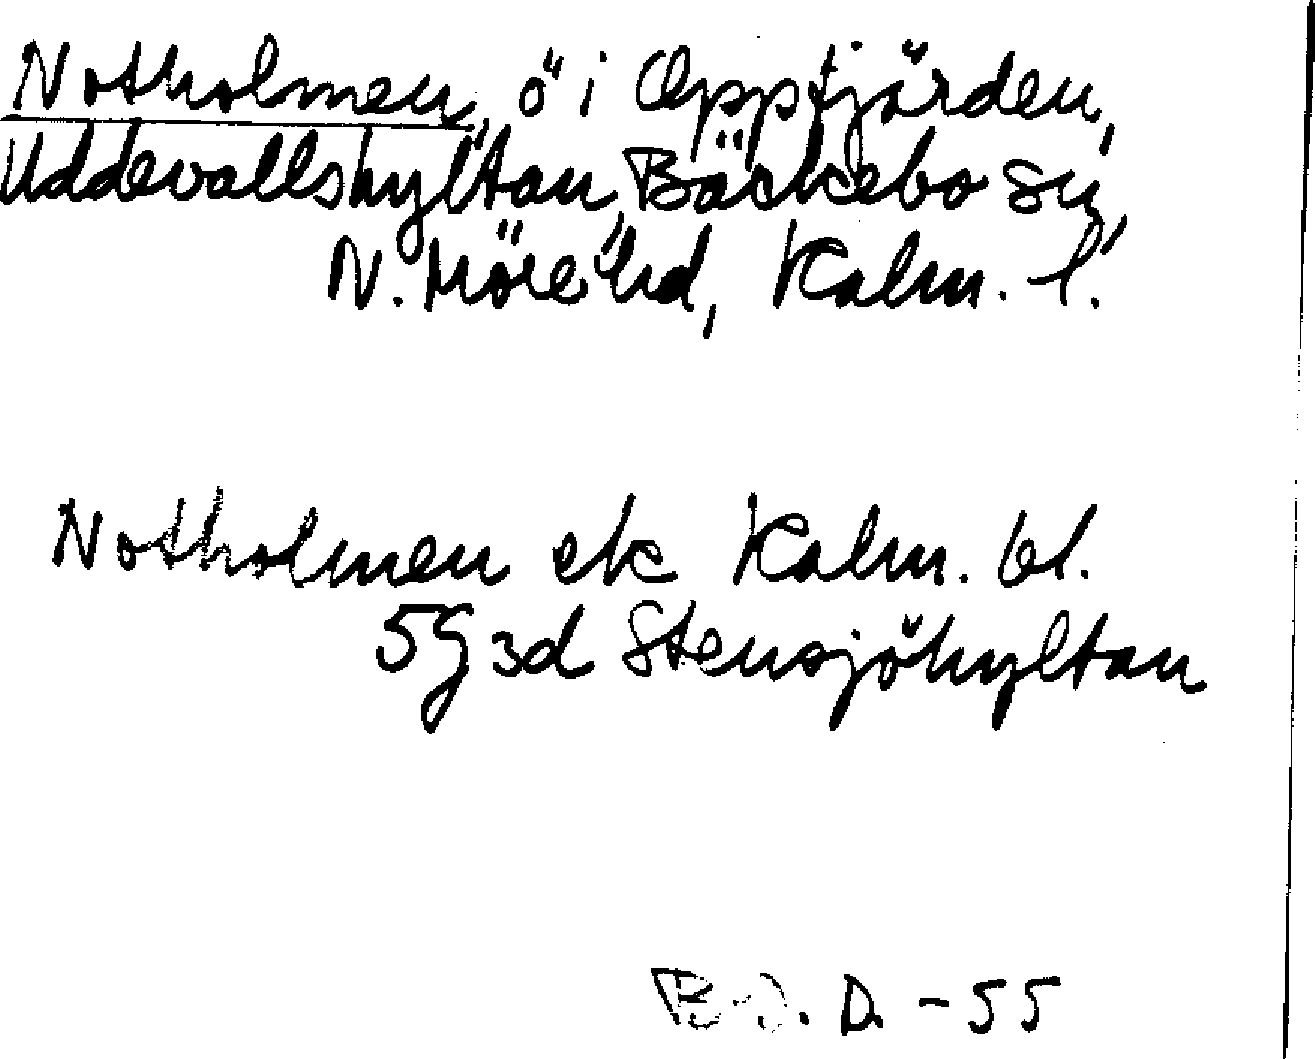 Notholmen, ö i Oppfjärden,
Uddevallshyltan, Bäckebo sn,
N. Möre hd, Kalm. l.
Notholmen ek Kalm. bl.
5G3d Stensjöhyltan
D. -55